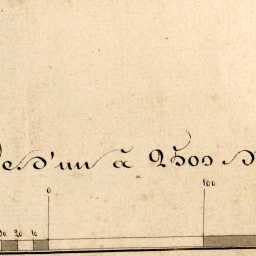 d'un à 2500
0 100
30 20 10